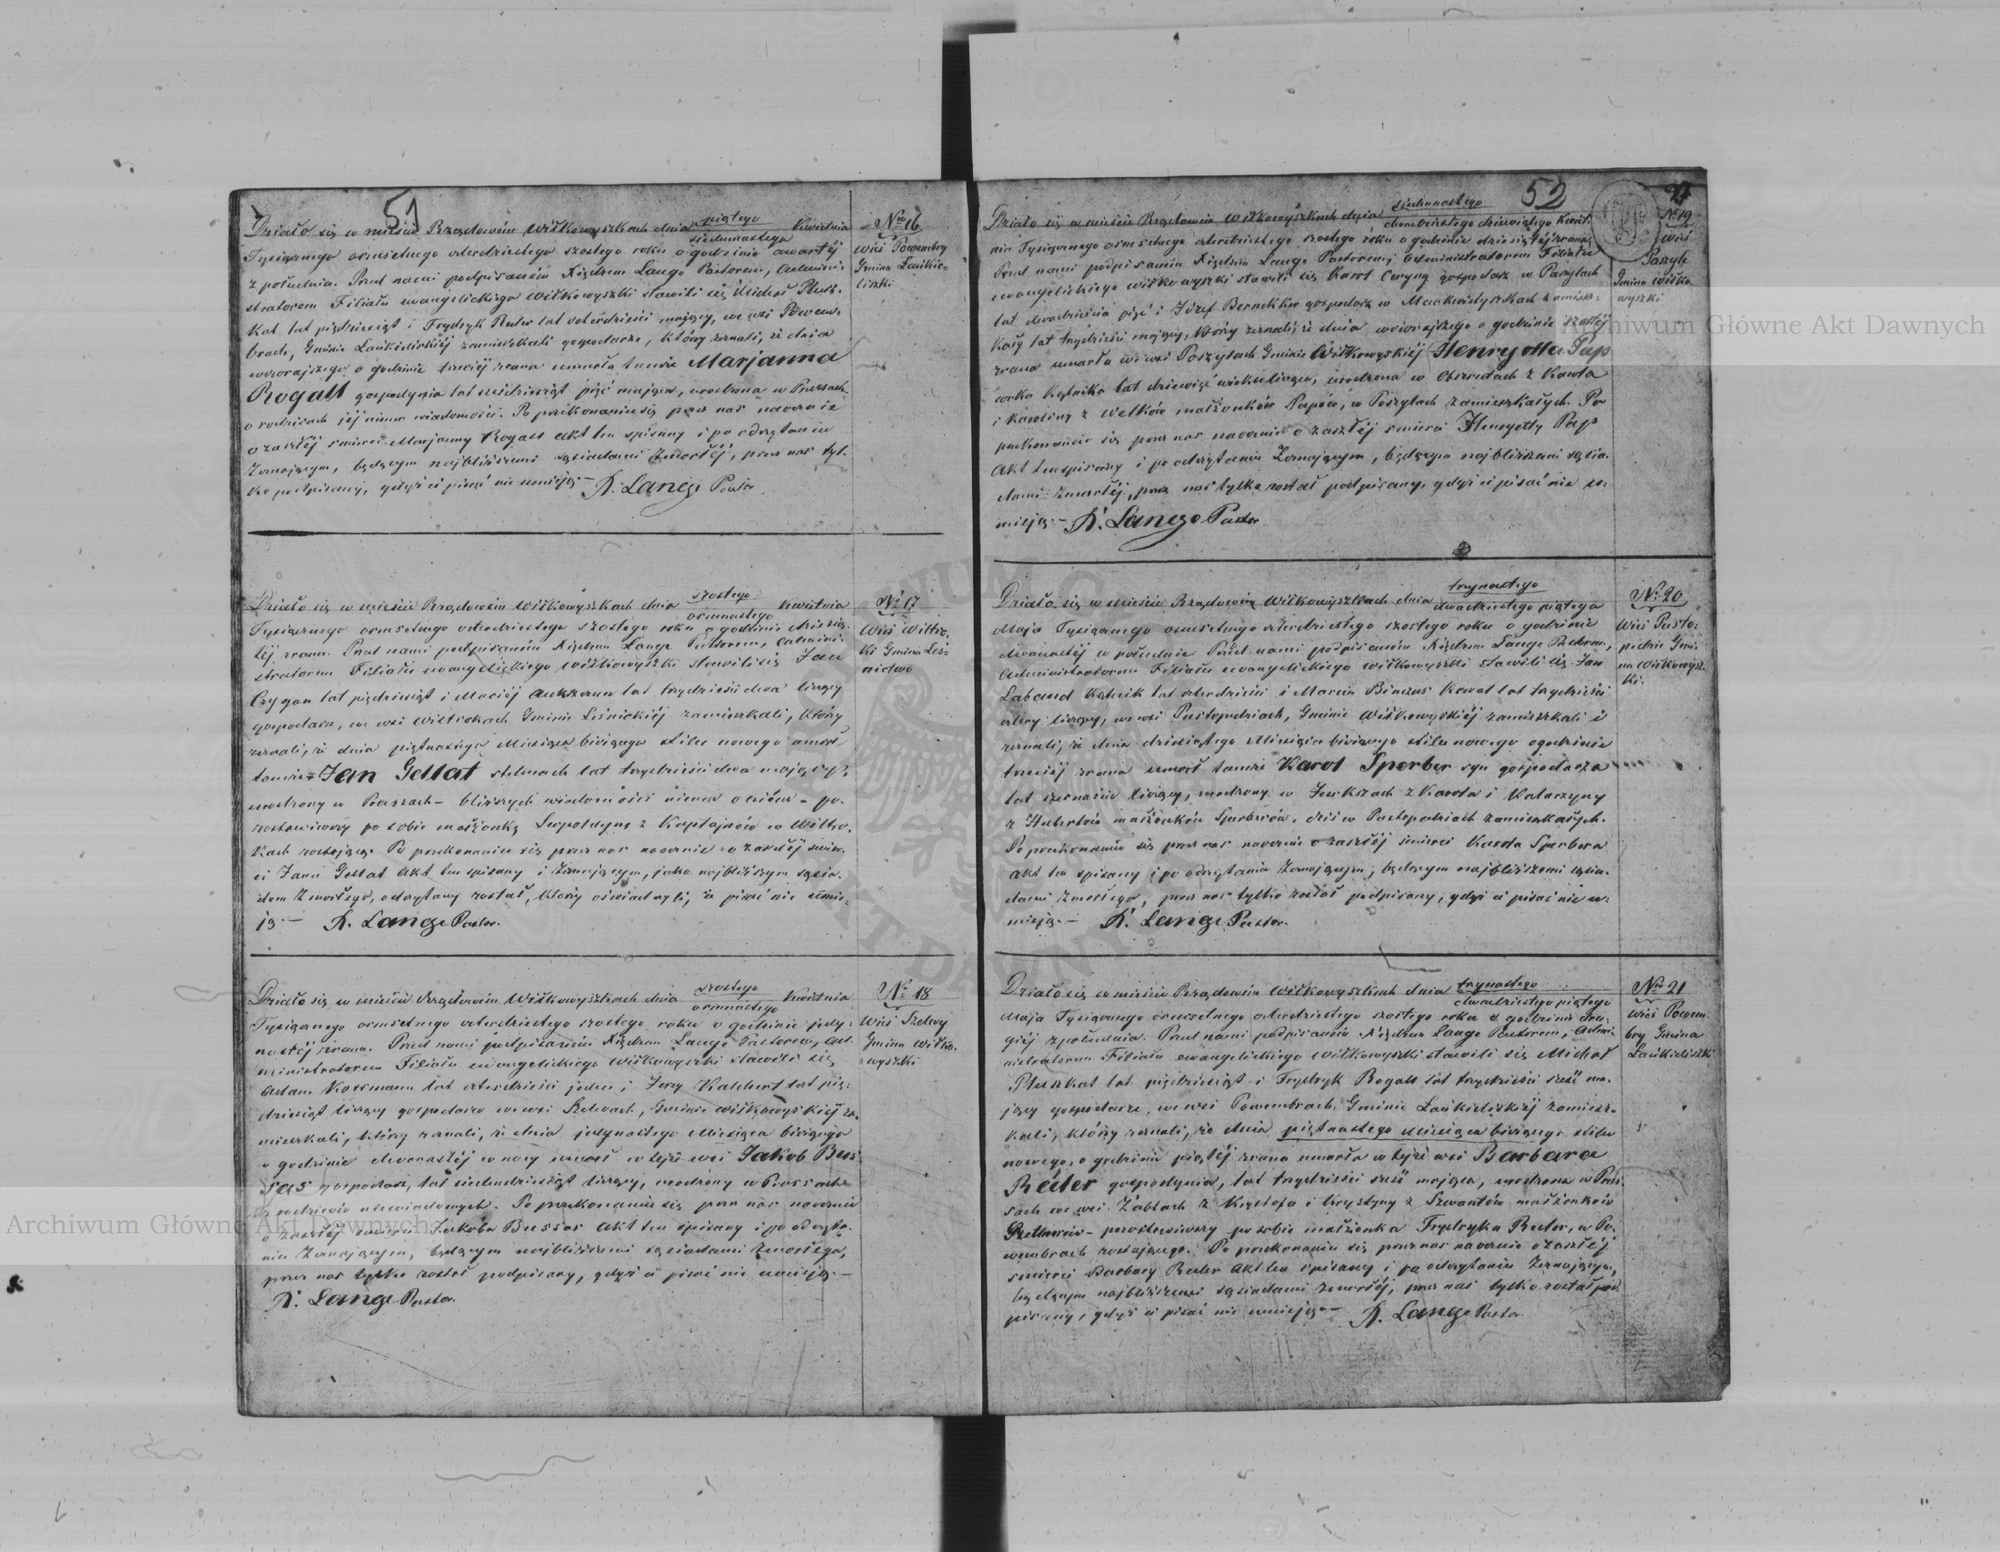 51
Działo się w mieście Rządowém Wiłkowyszkach dnia piątego/siedmnastego Kwietnia
Tysiącznego ośmsetnego czterdziestego szóstego roku o godzinie czwartéy
z południa. Przed nami podpisaném Xiędzem Lange Pastorem, Admini-
stratorem Filiału ewangelickiego Wiłkowyszki stawili się Michał Plusz-
kat lat pięździesiąt i Frydryk Reder lat czterdzieści mający, we wsi Powem-
brach, Gminie Łaukieliskiéj zamieszkali gospodarze, którzy zeznali, że dnia
wczorajszego o godzinie trzeciéj zrana umarła tamże Marjanna
Rogall gospodynia lat sześćdziesiąt pięć mająca, urodzona w Prussach
o rodzicach jéj niema wiadomości. Po przekonaniu się przez nas naocznie
o zaszłéj śmierci Marjanny Rogall Akt ten spisany i po odczytaniu
Zeznającym, będącym najbliższemi sąsiadami Zmarłéj, przez nas tyl-
ko podpisany, gdyż ci pisać nie umieją — R. Lange Pastor.
No 16
Wieś Powembry
Gmina Łaukie-
liszki
Działo się w mieście Rządowém Wiłkowyszkach dnia szóstego/ośmnastego Kwietnia
Tysiącznego ośmsetnego czterdziestego szóstego roku o godzinie dziesią-
téj zrana. Przed nami podpisaném Xiędzem Lange Pastorem, Admini-
stratorem Filiału ewangelickiego Wiłkowyszki stawili się Jan
Czygan lat pięździesiąt i Maciéj lat trzydzieści dwa liczący
gospodarze, we wsi Wiltrokach Gminie Leśnickiéj zamieszkali, którzy
zeznali, że dnia piętnastego Miesiąca bieżącego stilu nowego umarł
tamże Jan Gettat stelmach lat trzydzieści dwa mający,
urodzony w Prussach – bliższych wiadomości niema o nim – po-
zostawiwszy po sobie małżonkę Leopoldynę z Kaptajnów w Wiltro-
kach zostającą. Po przekonaniu się przez nas naocznie o zaszłéj śmier-
ci Jana Gettat Akt ten spisany i Zeznającym, jako najbliższym sąsia-
dom Zmarłego, odczytany został, którzy oświadczyli, że pisać nie umie-
ją. — R. Lange Pastor.
No 17
Wieś Wiltro-
ki Gmina Leś-
nictwo
Działo się w mieście Rządowém Wiłkowyszkach dnia szóstego/ośmnastego Kwietnia
Tysiącznego ośmsetnego czterdziestego szóstego roku o godzinie jedy-
nastéj zrana. Przed nami podpisaném Xiędzem Lange Pastorem, Ad-
ministratorem Filiału ewangelickiego Wiłkowyszki stawili się
Adam Kossmann lat czterdzieści jeden i Jerzy Kaldert lat pię-
dziesiąt liczący gospodarze we wsi Szelwach, Gminie Wiłkowyskiéj za-
mieszkali, którzy zeznali, że dnia jedynastego Miesiąca bieżącego
o godzinie dwunastéj w nocy umarł w tejże wsi Jakób Bus-
sas gospodarz, lat siedmdziesiąt liczący, urodzony w Prussach
z rodziców niewiadomych. Po przekonaniu się przez nas naocznie
o zaszłéj śmierci Jakóba Bussas Akt ten spisany i po odczyta-
niu Zeznającym, będącym najbliższemi sąsiadami Zmarłego,
przez nas tylko został podpisany, gdyż ci pisać nie umieją. —
R. Lange Pastor.
No 18
Wieś Szelwy
Gmina Wiłko-
wyszki
52
Działo się w mieście Rządowém Wiłkowyszkach dnia siedmnastego/dwudziestego dziewiątego Kwiet-
nia Tysiącznego ośmsetnego czterdziestego szóstego roku o godzinie dziesiątéj zrana.
Przed nami podpisaném Xiędzem Lange Pastorem, Administratorem Filiału
ewangelickiego Wiłkowyszki stawili się Karol gospodarz w Poszylach
lat dwadzieścia pięć i Józef gospodarz w zamiesz-
kały lat trzydzieści mający, którzy zeznali, że dnia wczorajszego o godzinie szóstéj
zrana umarła we wsi Poszylach Gminie Wiłkowyskiéj Henryetta Pap
córka Kątnika lat dziewięć wieku licząca, urodzona w z Karola
i Karoliny z małżonków Papów, w Poszylach zamieszkałych. Po
przekonaniu się przez nas naocznie o zaszłéj śmierci Henryetty Pap
Akt ten spisany i po odczytaniu Zeznającym, będącym najbliższemi sąsia-
dami Zmarłéj, przez nas tylko został podpisany, gdyż ci pisać nie u-
mieją. — R. Lange Pastor
No 19
Wieś
Poszyle
Gmina Wiłko-
wyszki
Działo się w mieście Rządowém Wiłkowyszkach dnia trzynastego/dwudziestego piątego
Maja Tysiącznego ośmsetnego czterdziestego szóstego roku o godzinie
dwunastéj w południe. Przed nami podpisaném Xiędzem Lange Pastorem,
Administratorem Filiału ewangelickiego Wiłkowyszki stawili się Jan
Laband Kątnik lat czterdzieści i Marcin Kowal lat trzydzieści
cztery liczący, we wsi Pustopedziach, Gminie Wiłkowyskiéj zamieszkali i
zeznali, że dnia dziesiątego Miesiąca bieżącego stilu nowego o godzinie
trzeciéj zrana umarł tamże Karol Sperber syn gospodarza
lat szesnaście liczący, urodzony w z Karola i Katarzyny
z Hubertów małżonków Sperberów, dziś w Pustopedziach zamieszkałych.
Po przekonaniu się przez nas naocznie o zaszłéj śmierci Karola Sperbera
Akt ten spisany i po odczytaniu Zeznającym, będącym najbliższemi sąsia-
dami Zmarłego, przez nas tylko został podpisany, gdyż ci pisać nie u-
mieją. — R. Lange Pastor.
No 20
Wieś Pusto-
pedzie Gmi-
na Wiłkowysz-
ki.
Działo się w mieście Rządowém Wiłkowyszkach dnia trzynastego/dwudziestego piątego
Maja Tysiącznego ośmsetnego czterdziestego szóstego roku o godzinie dru-
giéj z południa. Przed nami podpisaném Xiędzem Lange Pastorem, Admi-
nistratorem Filiału ewangelickiego Wiłkowyszki stawili się Michał
Pluszkat lat pięździesiąt i Frydryk Rogall lat trzydzieści sześć ma-
jący gospodarze, we wsi Powembrach, Gminie Łaukieliskiéj zamiesz-
kali, którzy zeznali, że dnia piętnastego Miesiąca bieżącego stilu
nowego, o godzinie piątéj zrana umarła w tejże wsi Barbara
Réder gospodynia, lat trzydzieści sześć mająca, urodzona w Prus-
sach we wsi Żablach z Krysztofa i Krystyny z Szwantów małżonków
– pozostawiwszy po sobie małżonka Frydryka Reder, w Po-
wembrach zostającego. Po przekonaniu się przez nas naocznie o zaszłéj
śmierci Barbary Reder Akt ten spisany i po odczytaniu Zeznającym,
będącym najbliższemi sąsiadami Zmarłéj, przez nas tylko został pod-
pisany, gdyż ci pisać nie umieją. — R. Lange Pastor
No 21
Wieś Powem-
bry Gmina
Łaukieliszki
Archiwum Główne Akt Dawnych
Archiwum Główne Akt Dawnych